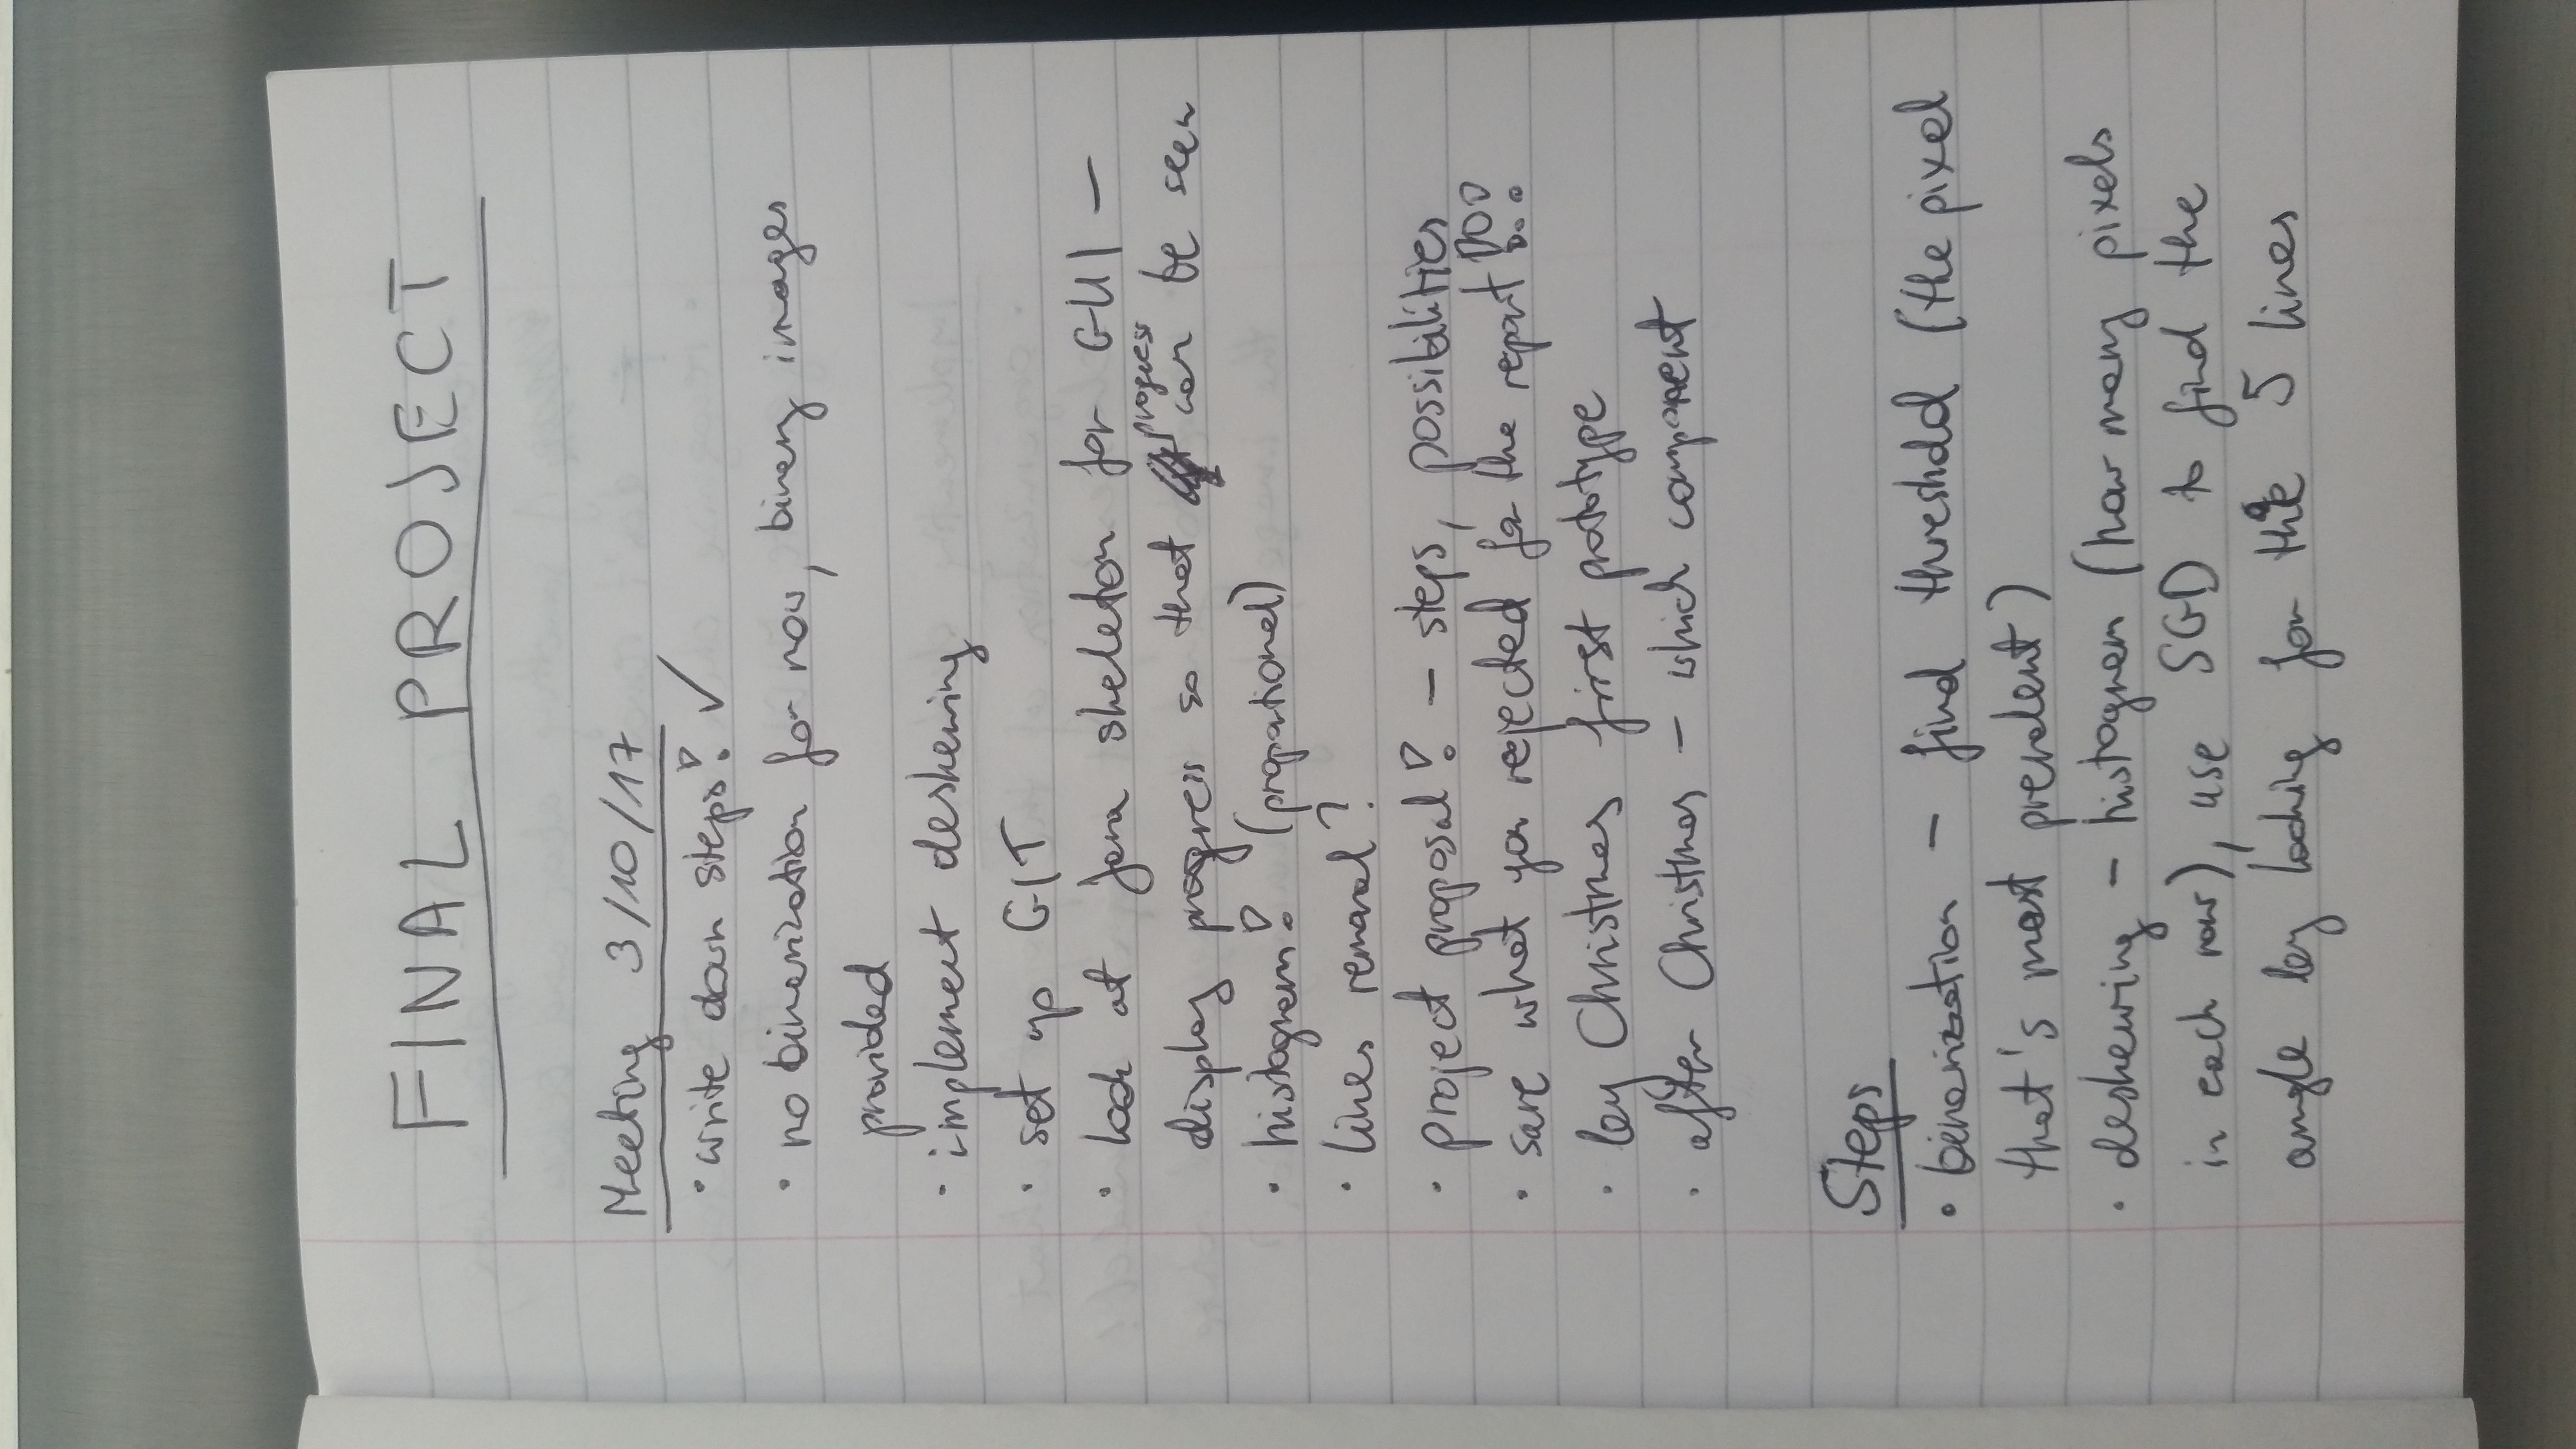 FINAL PROJECT
Meeting 3/10/17
• write down steps! ✓
• no binarization for now, binary images
provided
• implement deskewing
• set up GIT
• look at Java skeleton for GUI –
display progress so that progress can be seen
• histogram! (proportional)
• lines removal?
• project proposal! – steps, possibilities
• save what you rejected for the report!!!
• by Christmas first prototype
• after Christmas – which component
Steps
• binarization – find threshold (the pixel
that's most prevalent)
• deskewing – histogram (how many pixels
in each row), use SGD to find the
angle by looking for the 5 lines